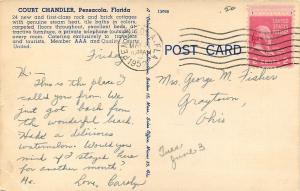 COURT CHANDLER, Pensacola, Florida
24 new and first-class rock and brick cottages
with genuine steam heat, tile baths in colors,
carpeted floors throughout, excellent beds, at-
tractive furniture, a private telephone outside in
every room. Catering exclusively to
tourists. Member AAA and Quality Courts
Friday
Hi -
This is the place I
called you from. We
just got back from
the wonderful beach.
Had a delicious
watermelon. Would you
mind if I stayed here
for another month?
Me. Love, Carolyn
POST CARD
Mrs. George M. Fisher
Graytown,
Ohio
Tues
June 3
50